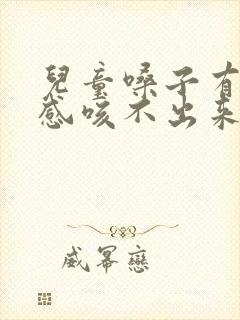 兒童嗓子有
感咳不出來
威冪戀